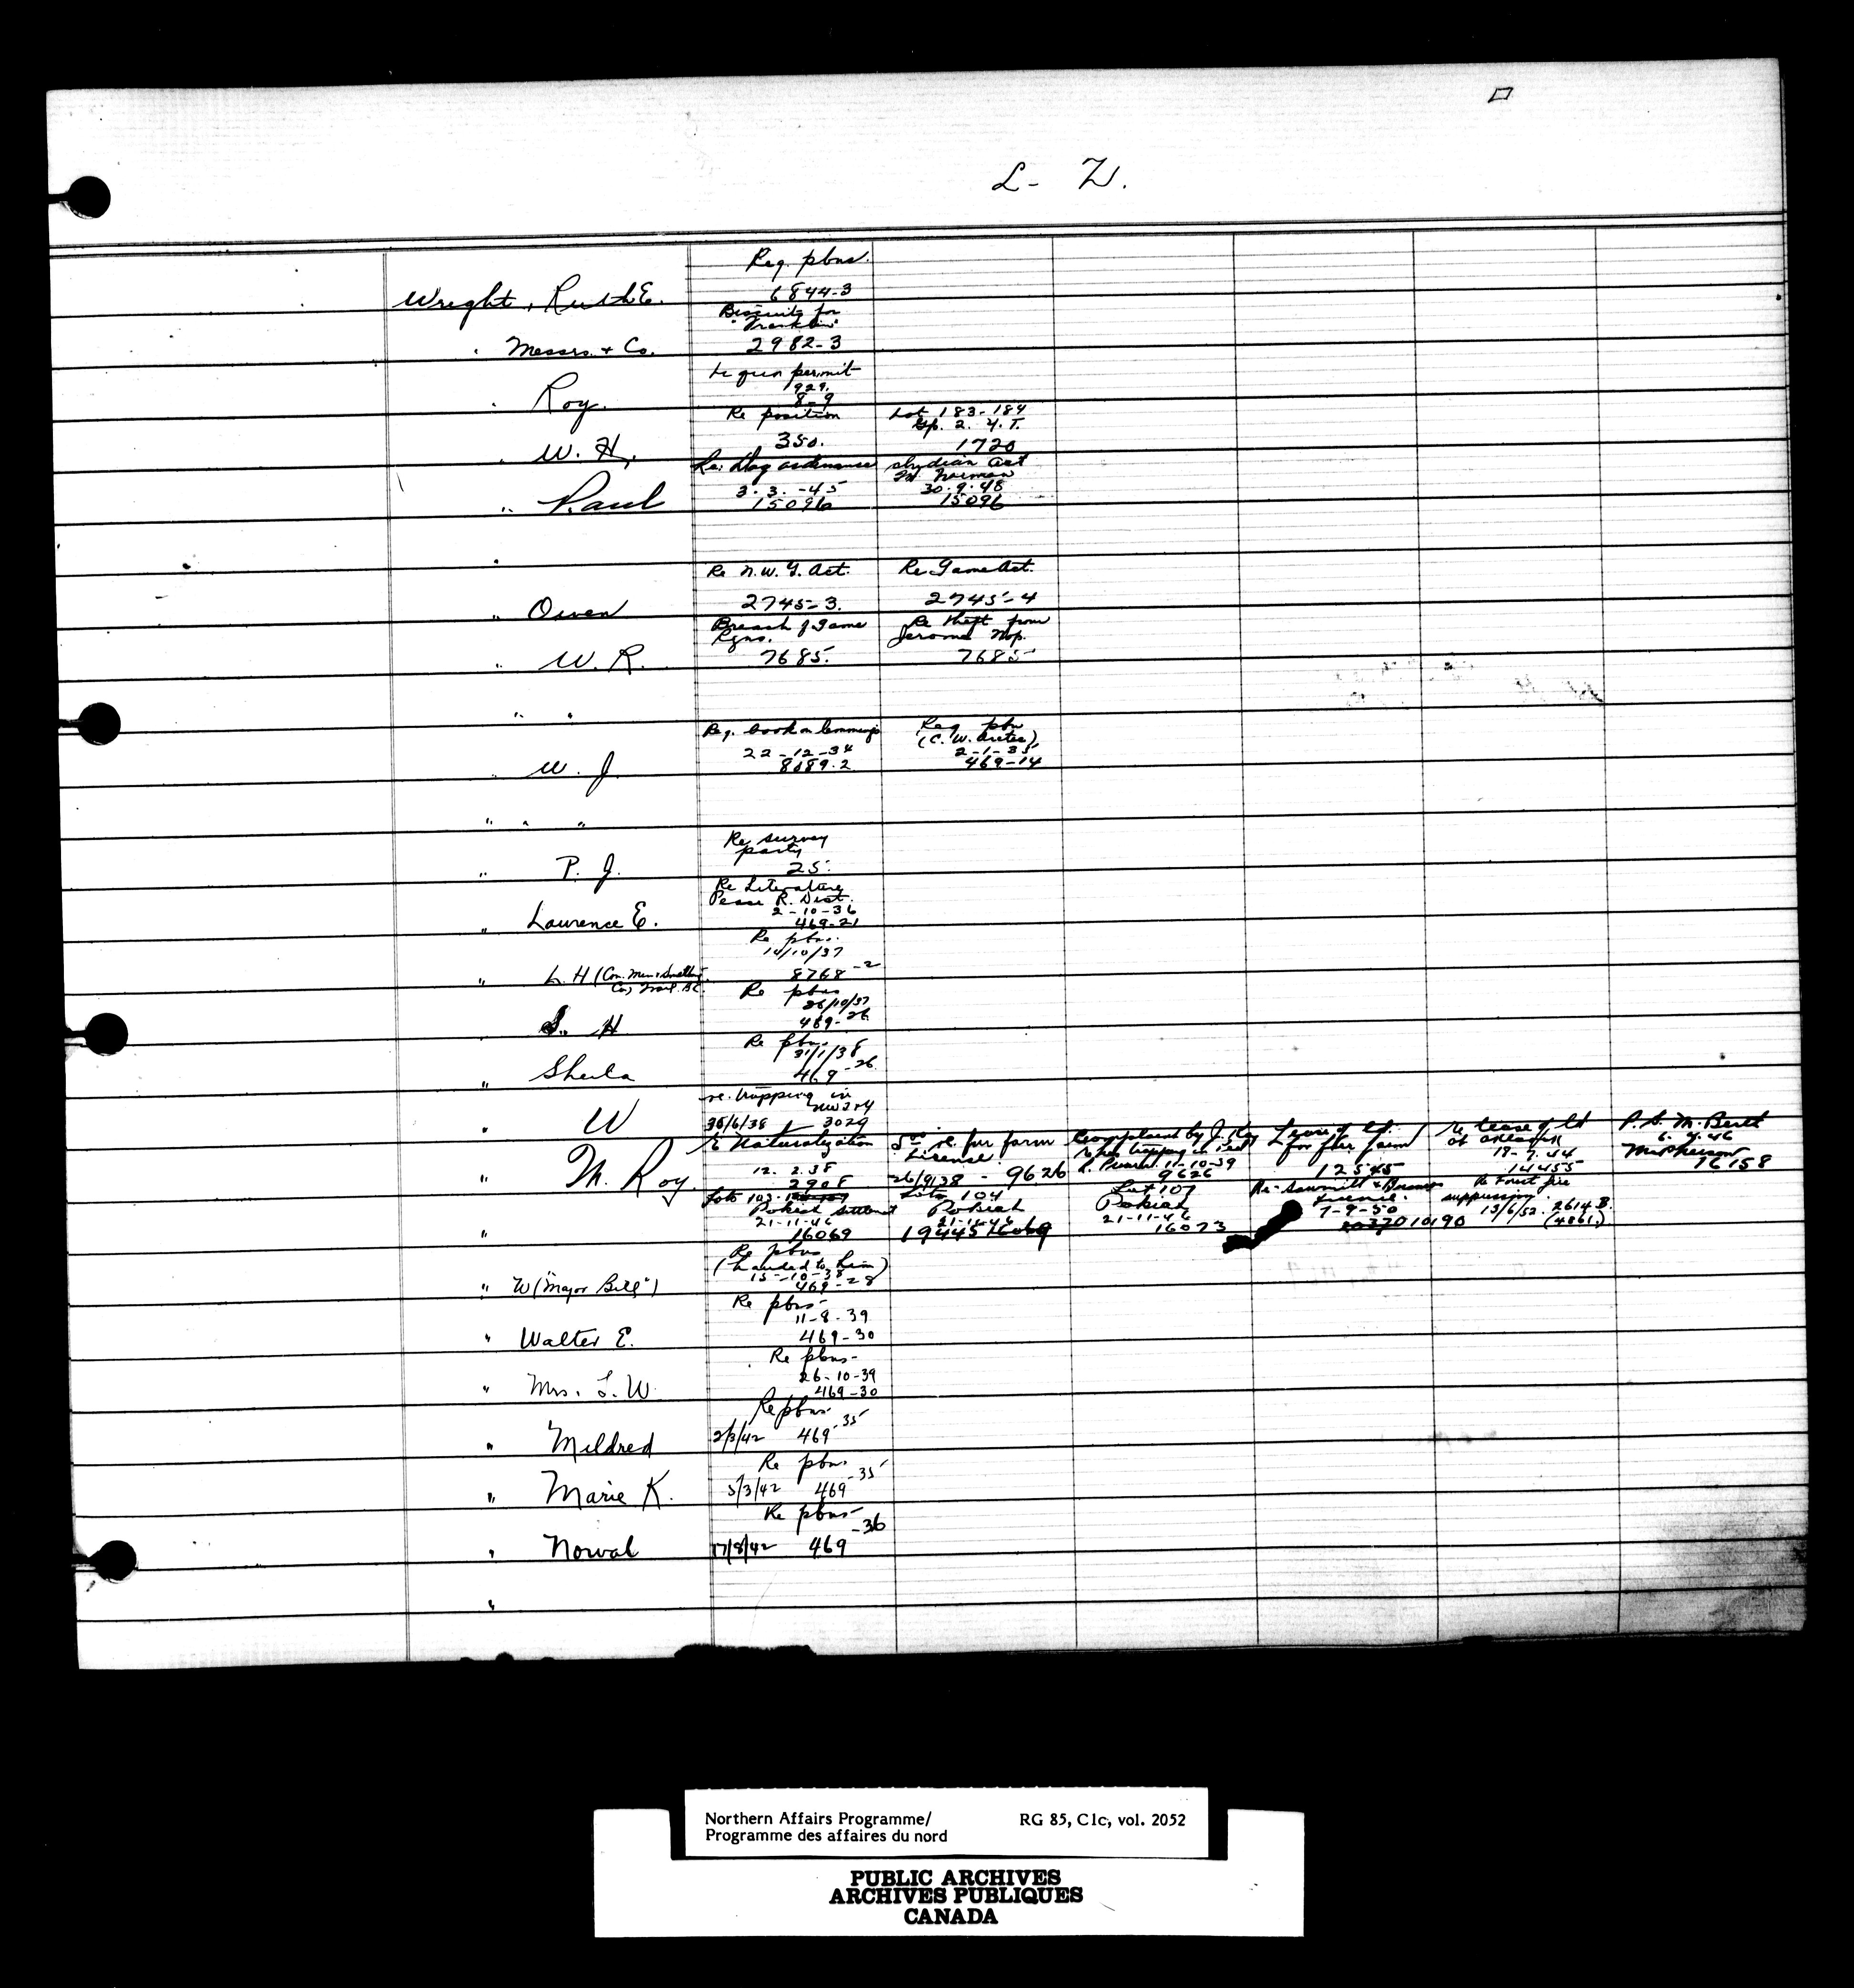 L - Z.
Req. pbns.
Wright, Ruth E. 6844-3
Biscuits for
"Franklin"
" Messrs. & Co. 2982-3
gun permit
1929.
" Roy. 8-9
Re position Lot 183-184
Gp. 2. Y.T.
" W. H. 350. 1720
Re: Dog ordinance Indian Act
Ft Norman
3-3-45 30.9.48
" Paul 15096 15096
"
Re N.W.G. Act. Re Game Act.
" Owen 2745-3. 2745-4
Breach of Game Re theft from
Rgns. Jerome
" W. R. 7685. 7685
" "
Req. book on Req pbn
(C. W. Arctic)
22-12-34 2-1-35
" W. J. 8089-2 469-14
" " "
Re survey
party
" P. J. 25.
Re Literature
Peace R. Dist.
2-10-36
" Laurence E. 469-21
Re pbns.
14/10/37
" L. H (Con. Min & Smelting 8768-2
Co, Trail. B.C.
Re pbns
26/10/37
" S. H 469-26
Re pbns
31/1/38
" Sheila 469-26
re. trapping in
" W 30/6/38 3029
Re Naturalization re. fur farm Complaint by Lease of ld. re lease of ld P.S. M. Berth
License. re trapping in for fur farm at 6.4.46
12. 2.38 11-10-39 19-7.44 McPherson
" M. Roy. 2908 26/9/38 - 9626 9626 12545 14455 16158
Lots 103- Lots 104 Lot 107 Re-Sawmill & Re Forest fire
Pokiak Settlement Pokiak Pokiak License. suppression.
21-11-46 21-11-46 21-11-46 7-9-50 13/6/52. 2614B.
" 16069 16073 10190 (4861)
Re pbns
(handed to him)
15-10-38
" W ("Major Bill") 469-28
Re pbns
11-8-39
" Walter E. 469-30
Re pbns-
26-10-39
" Mrs. L. W. 469-30
Re pbns-
" Mildred 2/3/42 469-35
Re pbns
" Marie K. 5/3/42 469-35
Re pbns-
" Norval 17/8/42 469-36
"
Northern Affairs Programme/ RG 85, C1c, vol. 2052
Programme des affaires du nord
PUBLIC ARCHIVES
ARCHIVES PUBLIQUES
CANADA